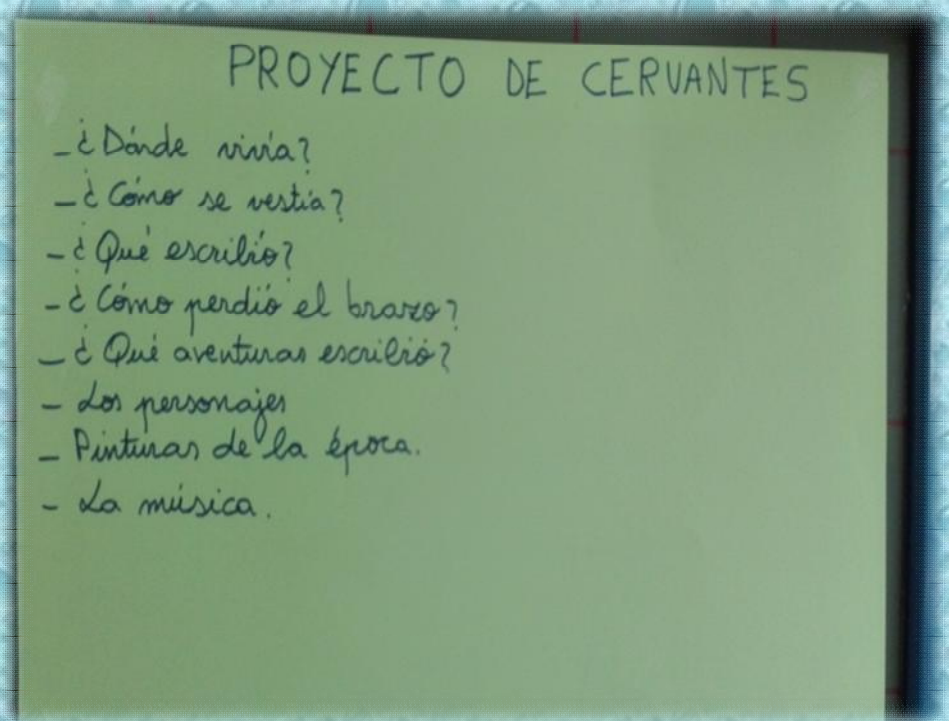 PROYECTO DE CERVANTES
- ¿Dónde vivía?
- ¿Cómo se vestía?
- ¿Qué escribió?
- ¿Cómo perdió el brazo?
- ¿Qué aventuras escribió?
- Los personajes
- Pinturas de la época.
- La música.